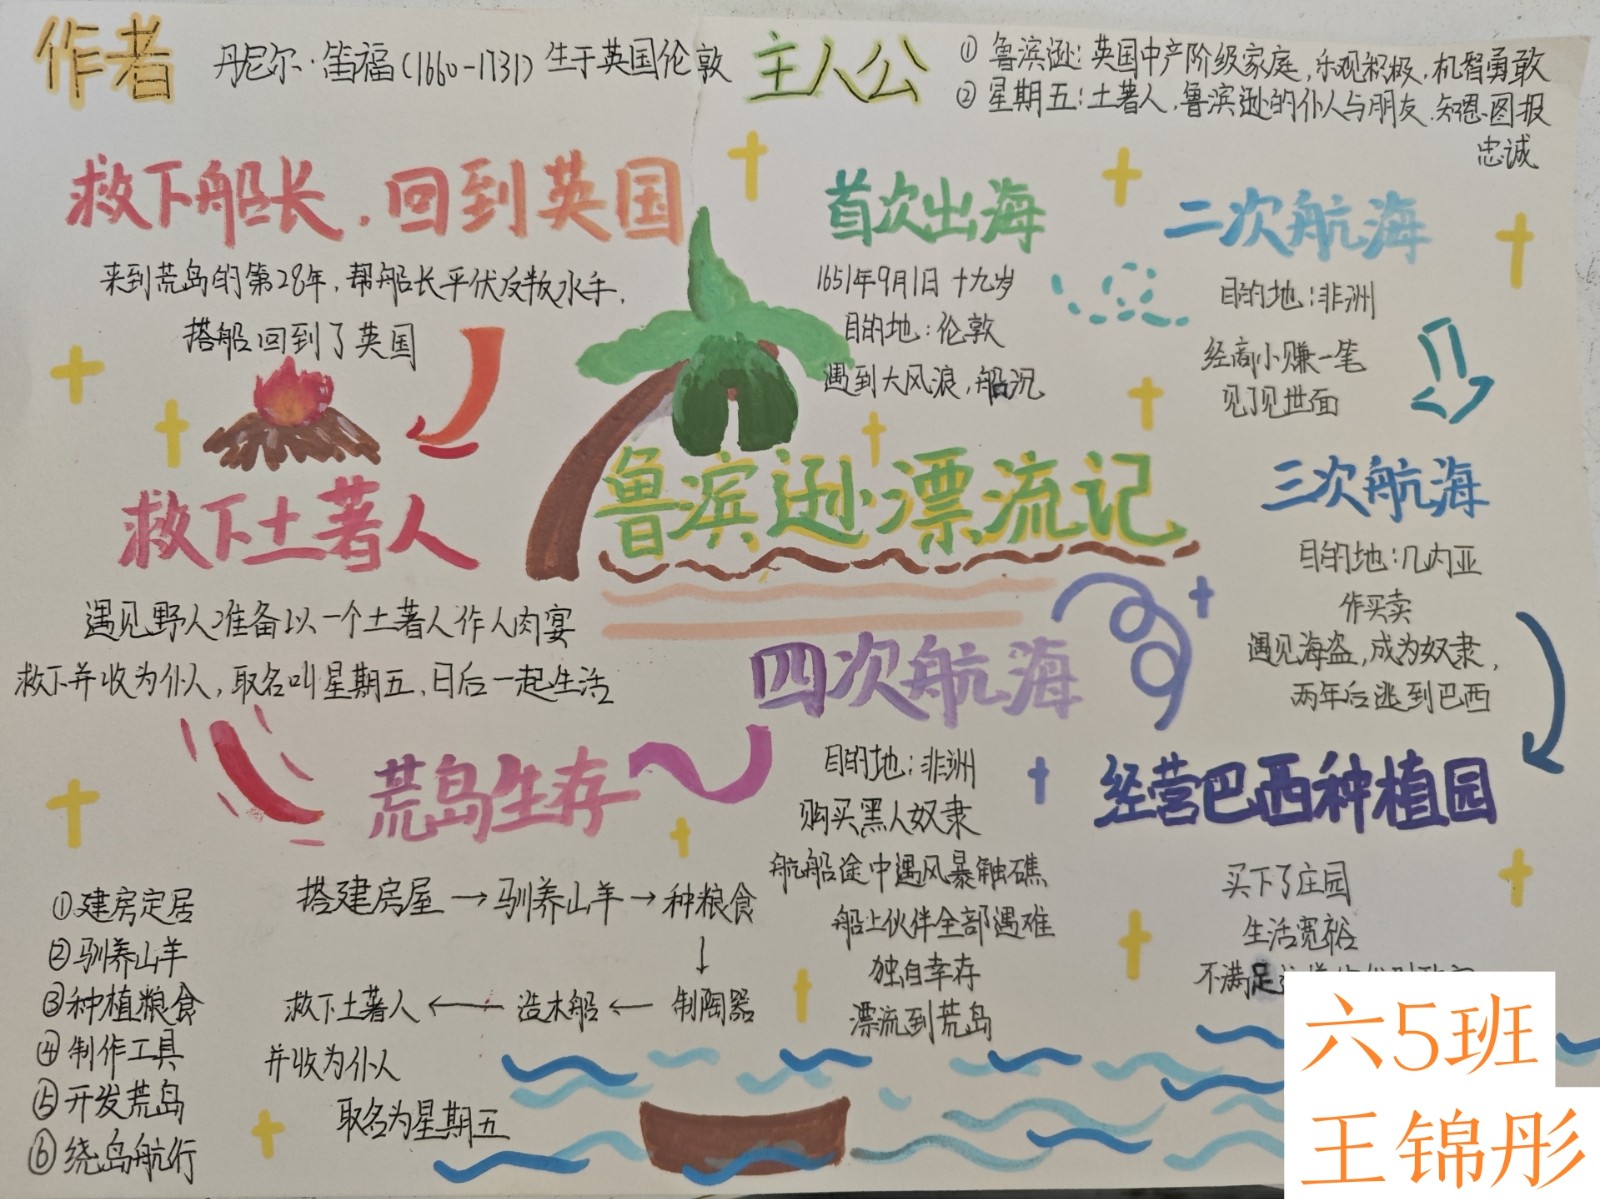 作者
丹尼尔·笛福(1660-1731) 生于英国伦敦
主人公
① 鲁滨逊: 英国中产阶级家庭,乐观积极,机智勇敢
② 星期五:土著人,鲁滨逊的仆人与朋友.知恩图报
忠诚
鲁滨逊漂流记
首次出海
1651年9月1日 十九岁
目的地:伦敦
遇到大风浪,船沉
二次航海
目的地:非洲
经商小赚一笔
见了见世面
三次航海
目的地:几内亚
作买卖
遇见海盗,成为奴隶,
两年后逃到巴西
经营巴西种植园
买下了庄园
生活宽裕
不满足
四次航海
目的地:非洲
购买黑人奴隶
航船途中遇风暴触礁
船上伙伴全部遇难
独自幸存
漂流到荒岛
荒岛生存
搭建房屋→驯养山羊→种粮食
↓
救下土著人←造木船←制陶器
并收为仆人
取名为星期五
①建房定居
②驯养山羊
③种植粮食
④制作工具
⑤开发荒岛
⑥绕岛航行
救下土著人
遇见野人准备以一个土著人作人肉宴
救下并收为仆人,取名叫星期五,日后一起生活
救下船长,回到英国
来到荒岛的第28年,帮船长平伏反叛水手,
搭船回到了英国
六5班
王锦彤